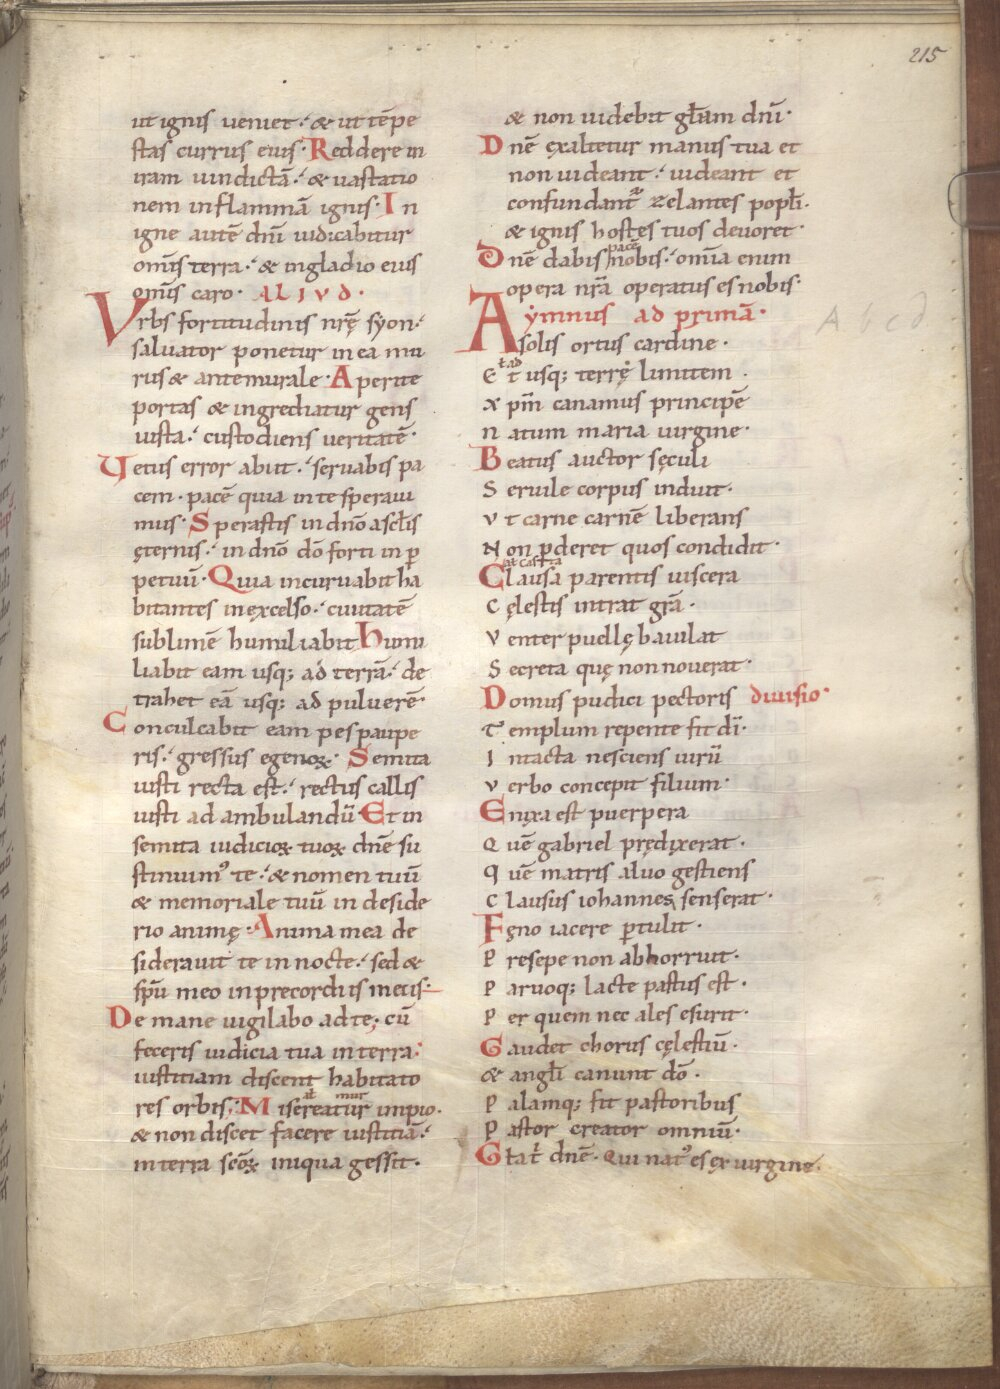 215
ut ignis ueniet. & ut tēpe
stas currus eius. Reddere in
iram uindictā. & uastatio
nem in flammā ignis. In
igne autē dn̄i iudicabitur
om̄is terra. & in gladio eius
om̄is caro. ALIVD.
Vrbs fortitudinis nr̄ę syon.
saluator ponetur in ea mu
rus & antemurale. Aperite
portas & ingrediatur gens
iusta. custodiens ueritatē.
Vetus error abiit. seruabis pa
cem. pacē quia in te speraui
mus. Sperastis in dn̄o a scl̄is
ęternis. in dn̄o dō forti in ꝑ
petuū. Quia incuruabit ha
bitantes in excelso. ciuitatē
sublimē humiliabit Humi
liabit eam usq; ad terrā. de
trahet eā usq; ad puluerē
Conculcabit eam pes paupe
ris. gressus egenoꝝ. Semita
iusti recta est. rectus callis
iusti ad ambulandū Et in
semita iudicioꝝ tuoꝝ dn̄e su
stinuimꝰ te. & nomen tuū
& memoriale tuū in deside
rio animę. Anima mea de
siderauit te in nocte. sed &
sp̄u meo in precordiis meis.
De mane uigilabo ad te; cū
feceris iudicia tua in terra.
iustitiam discent habitato
res orbis. Misereatur impio.
& non discet facere iustitiā.
in terra sc̄oꝝ iniqua gessit.
& non uidebit gl̄am dn̄i.
Dn̄e exaltetur manus tua et
non uideant. uideant et
confundant᷑ zelantes popl̄i.
& ignis hostes tuos deuoret.
pacē
Dn̄e dabis nobis. om̄ia enim
opera nr̄a operatus es nobis.
Aymnus ad primā.
A solis ortus cardine.
Et usq; terrę limitem.
xpm̄ canamus principē
natum maria uirgine.
Beatus auctor sęculi
Seruile corpus induit.
Vt carne carnē liberans
Non ꝑderet quos condidit.
Clausa parentis uiscera
Cęlestis intrat grā.
Venter puellę baiulat
Secreta quę non nouerat.
Domus pudici pectoris diuisio.
Templum repente fit dī.
Intacta nesciens uirū
Verbo concepit filium.
Enixa est puerpera
Quē gabriel prędixerat.
Quē matris aluo gestiens
Clausus iohannes senserat.
Fęno iacere ꝑtulit.
Presepe non abhorruit.
Paruoq; lacte pastus est.
Per quem nec ales esurit.
Gaudet chorus cęlestiū.
& angl̄i canunt dō.
Palamq; fit pastoribus
Pastor creator omniū.
Gl̄a t᷑ dn̄e. Qui natꝰ es ex uirgine.
A b c d